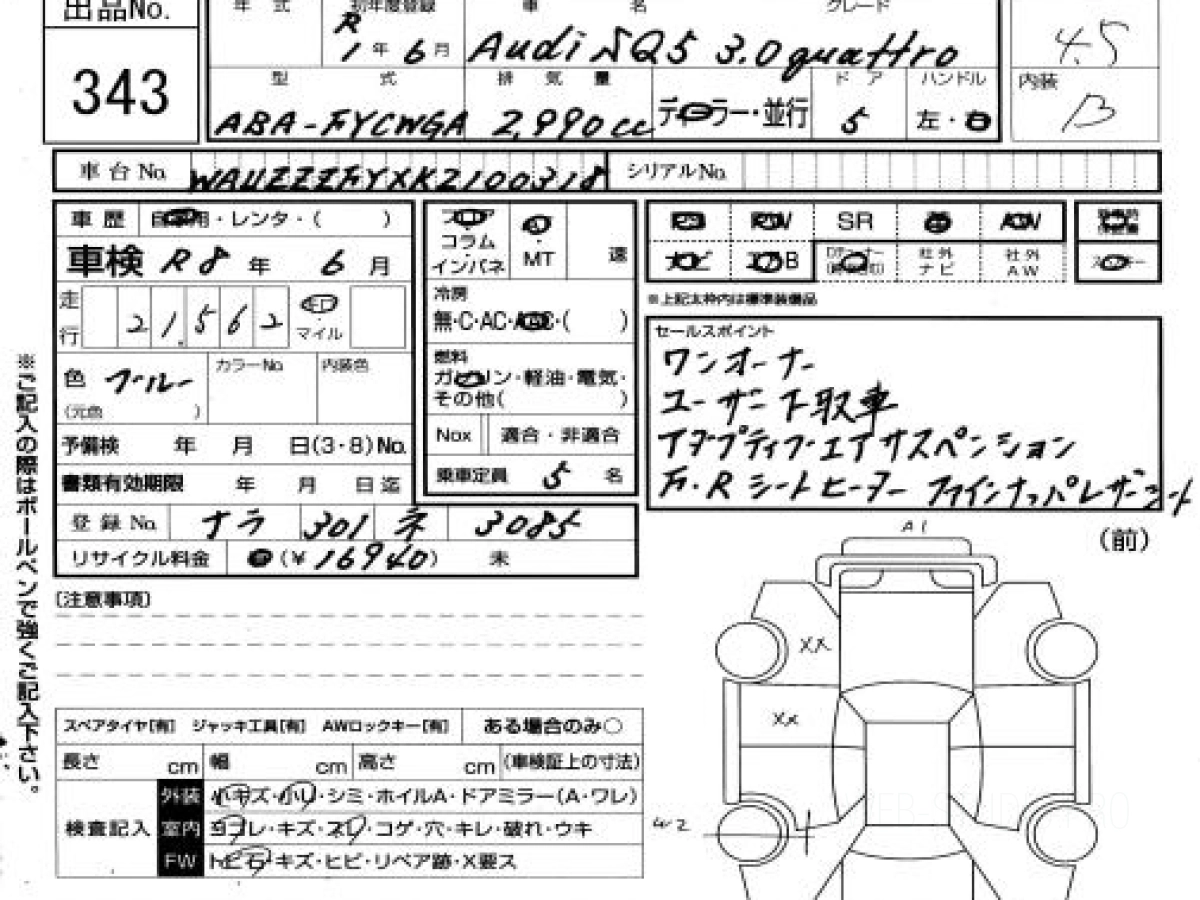 出品No.
343
年 式 初年度登録 車 名 グレード
R 1 年 6 月 Audi SQ5 3.0 quattro
4.5
型 式 排 気 量 ド ア ハンドル
内装
ABA-FYCWGA 2,990cc ディーラー・並行 5 左・右
B
車台No. WAUZZZFYXK2100318 シリアルNo.
車 歴 自家用・レンタ・( )
車検 R8 年 6 月
走行 21,562 キロ・マイル
色 ブルー カラーNo. 内装色
(元色 )
予備検 年 月 日(3・8)No.
書類有効期限 年 月 日迄
登 録 No. ナラ 301 ネ 3085
リサイクル料金 (¥16940) 未
フロア
コラム
インパネ
AT・MT 速
冷房
無・C・AC・AAC・( )
燃料
ガソリン・軽油・電気・
その他( )
Nox 適合・非適合
乗車定員 5 名
PS PW SR 革 AW
ナビ エアB 社外ナビ 社外AW
※上記太枠内は標準装備品
セールスポイント
ワンオーナー
ユーザー下取車
アダプティブエアサスペンション
F・Rシートヒーター ファインナッパレザーシート
※ご記入の際はボールペンで強くご記入下さい。
(注意事項)
(前)
A1
XX
XX
W2
スペアタイヤ[有] ジャッキ工具[有] AWロックキー[有] ある場合のみ○
長さ cm 幅 cm 高さ cm (車検証上の寸法)
検査記入
外装 小キズ・小U・シミ・ホイルA・ドアミラー(A・ワレ)
室内 ヨゴレ・キズ・スレ・コゲ・穴・キレ・破れ・ウキ
FW トビ石・キズ・ヒビ・リペア跡・X要ス